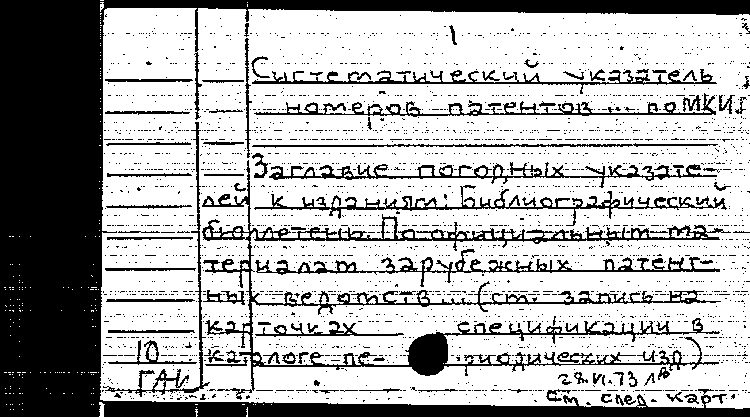 1
Систематический указатель
номеров патентов ... по МКИ
Заглавие погодных указате-
лей к изданиям: Библиографический
бюллетень. По официальным ма-
териалам зарубежных патент-
ных ведомств ... (см. запись на
карточках спецификации в
каталоге пе- риодических изд)
10
ГАИ
28.VI.73
См. след. карт.